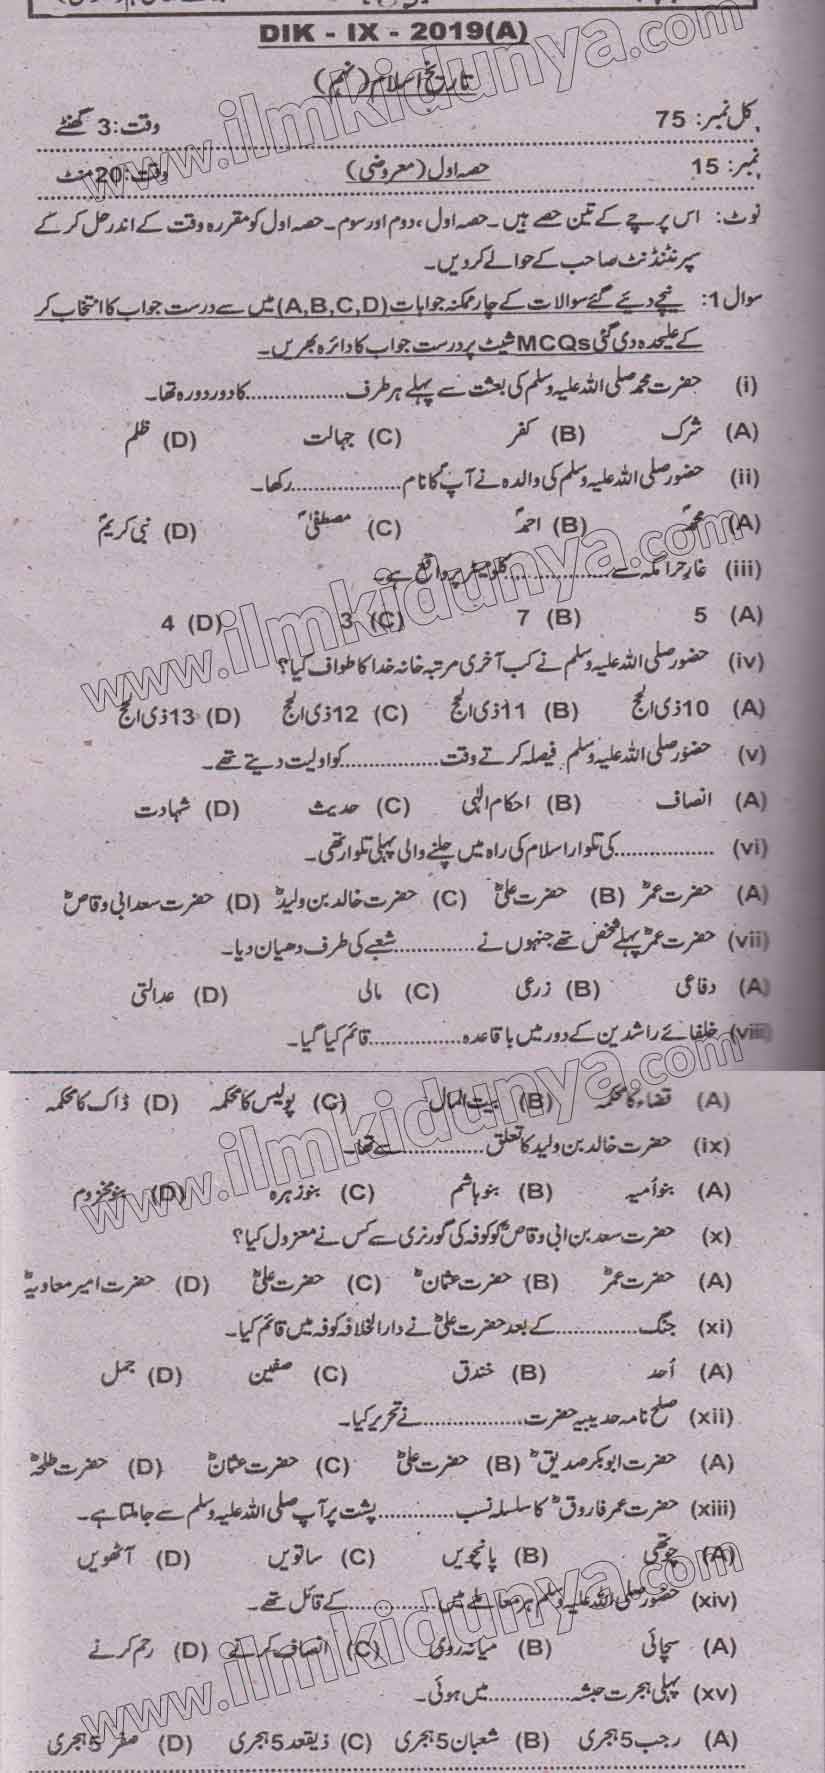 DIK - IX - 2019(A)
تاریخ اسلام (نہم)
کل نمبر: 75 وقت: 3 گھنٹے
نمبر: 15 حصہ اول (معروضی) وقت: 20 منٹ
نوٹ: اس پرچے کے تین حصے ہیں۔ حصہ اول، دوم اور سوم۔ حصہ اول کو مقررہ وقت کے اندر حل کر کے
سپرنٹنڈنٹ صاحب کے حوالے کر دیں۔
سوال 1: نیچے دیئے گئے سوالات کے چار ممکنہ جوابات (A,B,C,D) میں سے درست جواب کا انتخاب کر
کے علیحدہ دی گئی MCQs شیٹ پر درست جواب کا دائرہ بھریں۔
(i) حضرت محمد صلی اللہ علیہ وسلم کی بعثت سے پہلے ہر طرف ................ کا دور دورہ تھا۔
(A) شرک (B) کفر (C) جہالت (D) ظلم
(ii) حضور صلی اللہ علیہ وسلم کی والدہ نے آپؐ کا نام ................ رکھا۔
(A) محمدؐ (B) احمدؐ (C) مصطفیٰؐ (D) نبی کریمؐ
(iii) غارِ حرا مکہ سے ................ کلومیٹر پر واقع ہے۔
(A) 5 (B) 7 (C) 3 (D) 4
(iv) حضور صلی اللہ علیہ وسلم نے کب آخری مرتبہ خانہ خدا کا طواف کیا؟
(A) 10 ذی الحج (B) 11 ذی الحج (C) 12 ذی الحج (D) 13 ذی الحج
(v) حضور صلی اللہ علیہ وسلم فیصلہ کرتے وقت ................ کو اولیت دیتے تھے۔
(A) انصاف (B) احکام الٰہی (C) حدیث (D) شہادت
(vi) ................ کی تلوار اسلام کی راہ میں چلنے والی پہلی تلوار تھی۔
(A) حضرت عمرؓ (B) حضرت علیؓ (C) حضرت خالد بن ولیدؓ (D) حضرت سعد ابی وقاصؓ
(vii) حضرت عمرؓ پہلے شخص تھے جنہوں نے ................ شعبے کی طرف دھیان دیا۔
(A) دفاعی (B) زرعی (C) مالی (D) عدالتی
(viii) خلفائے راشدین کے دور میں باقاعدہ ................ قائم کیا گیا۔
(A) قضاء کا محکمہ (B) بیت المال (C) پولیس کا محکمہ (D) ڈاک کا محکمہ
(ix) حضرت خالد بن ولید کا تعلق ................ سے تھا۔
(A) بنو اُمیہ (B) بنو ہاشم (C) بنو زہرہ (D) بنو مخزوم
(x) حضرت سعد بن ابی وقاصؓ کو کوفہ کی گورنری سے کس نے معزول کیا؟
(A) حضرت عمرؓ (B) حضرت عثمانؓ (C) حضرت علیؓ (D) حضرت امیر معاویہؓ
(xi) جنگ ................ کے بعد حضرت علیؓ نے دارالخلافہ کوفہ میں قائم کیا۔
(A) اُحد (B) خندق (C) صفین (D) جمل
(xii) صلح نامہ حدیبیہ حضرت ................ نے تحریر کیا۔
(A) حضرت ابوبکر صدیقؓ (B) حضرت علیؓ (C) حضرت عثمانؓ (D) حضرت طلحہؓ
(xiii) حضرت عمر فاروقؓ کا سلسلہ نسب ................ پشت پر آپ صلی اللہ علیہ وسلم سے جا ملتا ہے۔
(A) چوتھی (B) پانچویں (C) ساتویں (D) آٹھویں
(xiv) حضور صلی اللہ علیہ وسلم ہر معاملے میں ................ کے قائل تھے۔
(A) سچائی (B) میانہ روی (C) انصاف کرنے (D) رحم کرنے
(xv) پہلی ہجرت حبشہ ................ میں ہوئی۔
(A) رجب 5 ہجری (B) شعبان 5 ہجری (C) ذیقعد 5 ہجری (D) صفر 5 ہجری
www.ilmkidunya.com
www.ilmkidunya.com
www.ilmkidunya.com
www.ilmkidunya.com